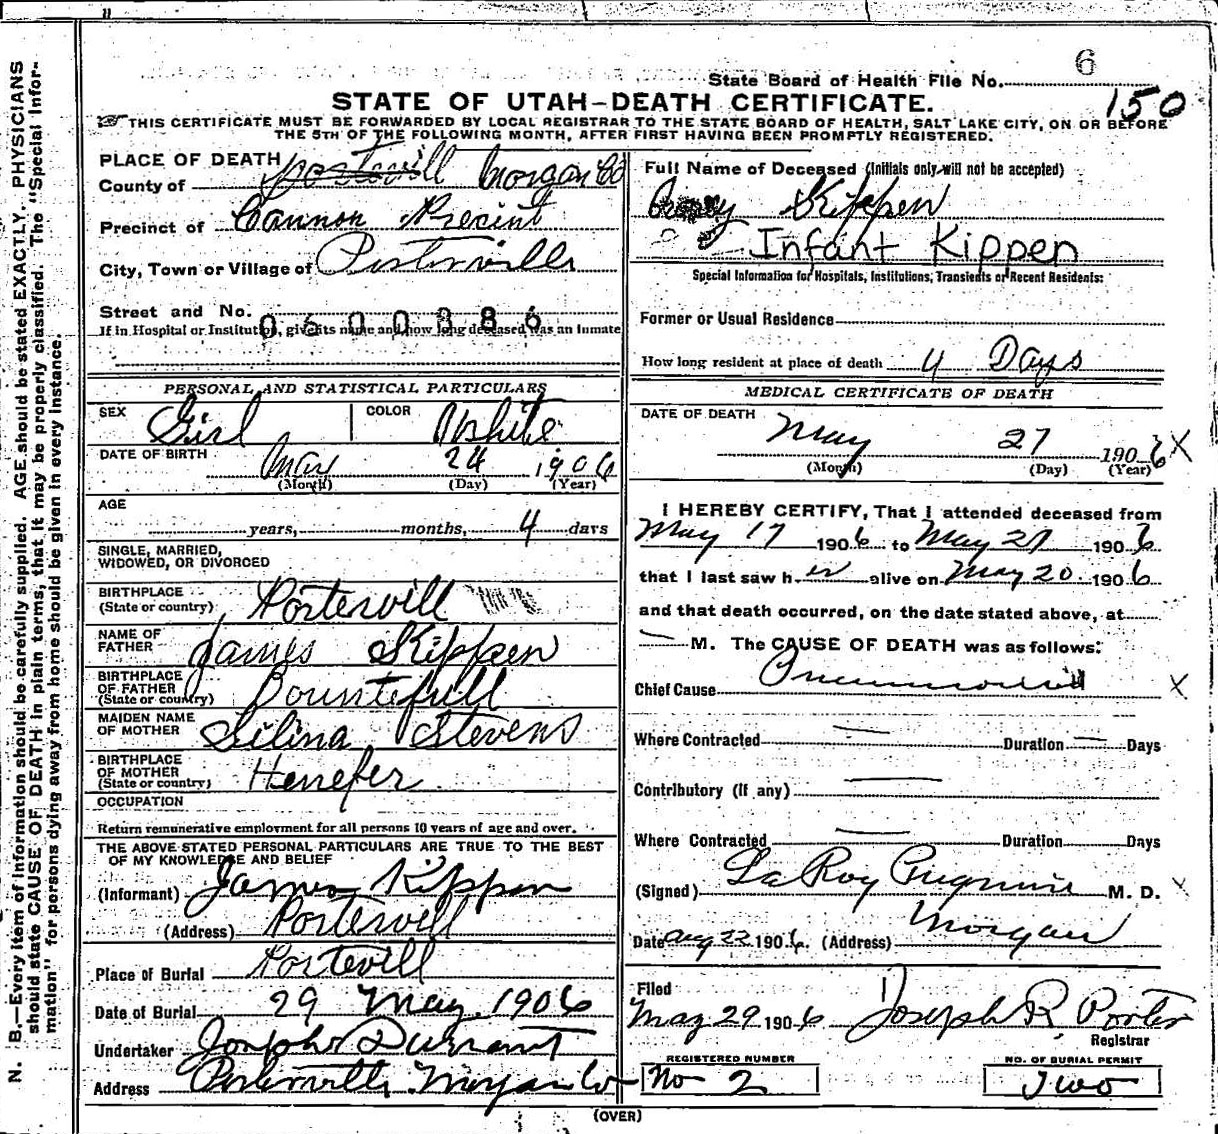 State Board of Health File No. 6
150
STATE OF UTAH—DEATH CERTIFICATE.
THIS CERTIFICATE MUST BE FORWARDED BY LOCAL REGISTRAR TO THE STATE BOARD OF HEALTH, SALT LAKE CITY, ON OR BEFORE
THE 5TH OF THE FOLLOWING MONTH, AFTER FIRST HAVING BEEN PROMPTLY REGISTERED.
PLACE OF DEATH
County of Morgan Co
Precinct of Cannon Precint
City, Town or Village of Porterville
Street and No.
0600386
If in Hospital or Institution, give its name and how long deceased was an inmate
PERSONAL AND STATISTICAL PARTICULARS
SEX Girl COLOR White
DATE OF BIRTH May 24 1906
(Month) (Day) (Year)
AGE
years, months, 4 days
SINGLE, MARRIED,
WIDOWED, OR DIVORCED
BIRTHPLACE
(State or country) Portervill
NAME OF
FATHER James Kippen
BIRTHPLACE
OF FATHER
(State or country) Bountefull
MAIDEN NAME
OF MOTHER Silina Stevens
BIRTHPLACE
OF MOTHER
(State or country) Henefer
OCCUPATION
Return remunerative employment for all persons 10 years of age and over.
THE ABOVE STATED PERSONAL PARTICULARS ARE TRUE TO THE BEST
OF MY KNOWLEDGE AND BELIEF
(Informant) James Kippen
(Address) Portervill
Place of Burial Portevill
Date of Burial 29 May 1906
Undertaker Joseph Durrant
Address Porterville Morgan Co
Full Name of Deceased (Initials only will not be accepted)
Kippen
Infant Kippen
Special Information for Hospitals, Institutions, Transients or Recent Residents:
Former or Usual Residence
How long resident at place of death 4 Days
MEDICAL CERTIFICATE OF DEATH
DATE OF DEATH
May 27 1906 X
(Month) (Day) (Year)
I HEREBY CERTIFY, That I attended deceased from
May 17 1906 to May 27 1906
that I last saw her alive on May 20 1906
and that death occurred, on the date stated above, at
M. The CAUSE OF DEATH was as follows:
Chief Cause Pneumonia X
Where Contracted Duration Days
Contributory (If any)
Where Contracted Duration Days
(Signed) LeRoy Pugmire M. D. X
Date Aug 22 1906. (Address) Morgan
Filed
May 29 1906 Joseph R. Porter
Registrar
REGISTERED NUMBER
No 2
NO. OF BURIAL PERMIT
Two
(OVER)
N. B.—Every item of information should be carefully supplied. AGE should be stated EXACTLY. PHYSICIANS
should state CAUSE OF DEATH in plain terms, that it may be properly classified. The "Special Infor-
mation" for persons dying away from home should be given in every instance.